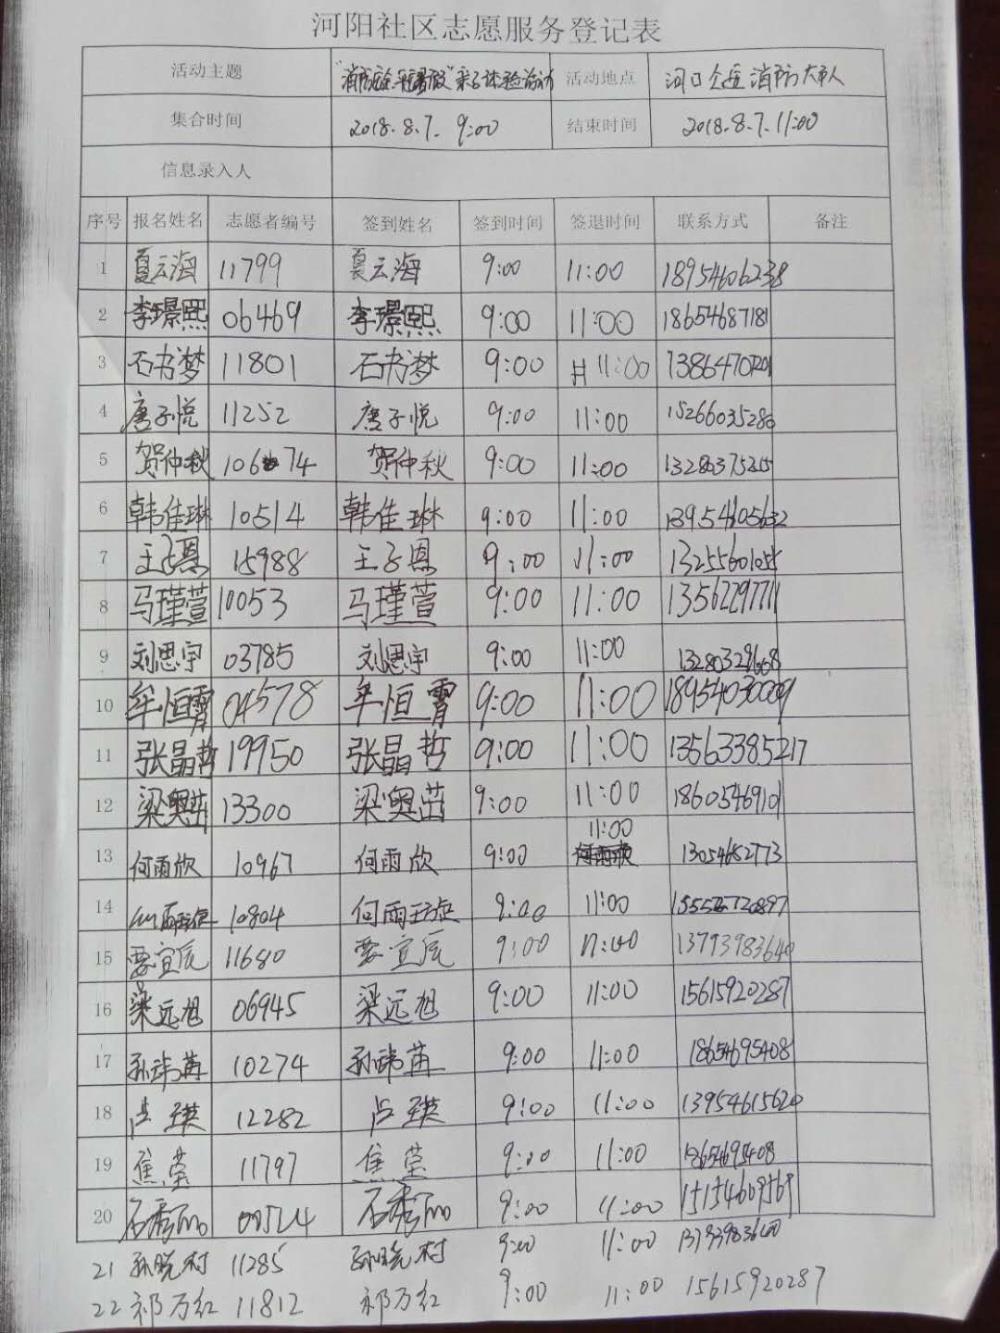 河阳社区志愿服务登记表
活动主题 亲子体验活动 活动地点 河口 消防大队
集合时间 2018.8.7. 9:00 结束时间 2018.8.7.11:00
信息录入人
序号 报名姓名 志愿者编号 签到姓名 签到时间 签退时间 联系方式 备注
1 夏云海 11799 夏云海 9:00 11:00 18954606238
2 李璟熙 06469 李璟熙 9:00 11:00 18654687181
3 石书梦 11801 石书梦 9:00 11:00
4 唐子悦 11252 唐子悦 9:00 11:00 15266035280
5 贺仲秋 10674 贺仲秋 9:00 11:00
6 韩佳琳 10514 韩佳琳 9:00 11:00 13954605632
7 王子恩 15988 王子恩 9:00 11:00
8 马瑾萱 10053 马瑾萱 9:00 11:00 13562297711
9 刘思宇 03785 刘思宇 9:00 11:00
10 牟恒霄 04578 牟恒霄 9:00 11:00
11 张晶哲 19950 张晶哲 9:00 11:00 13563385217
12 梁奥茁 13300 梁奥茁 9:00 11:00 18605469101
11:00
13 何雨欣 10967 何雨欣 9:00 13054682773
14 10804 何雨 9:00 11:00
15 11680 宜辰 9:00 11:00 13793983640
16 梁远旭 06945 梁远旭 9:00 11:00 15615920287
17 孙 10274 孙 9:00 11:00 18654695408
18 12282 9:00 11:00 13954615620
19 焦莹 11797 焦莹 9:00 11:00
20 石秀丽 石秀丽 9:00 11:00 15154609569
21 孙晓村 11285 孙晓村 9:00 11:00
22 祁万红 11812 祁万红 9:00 11:00 15615920287